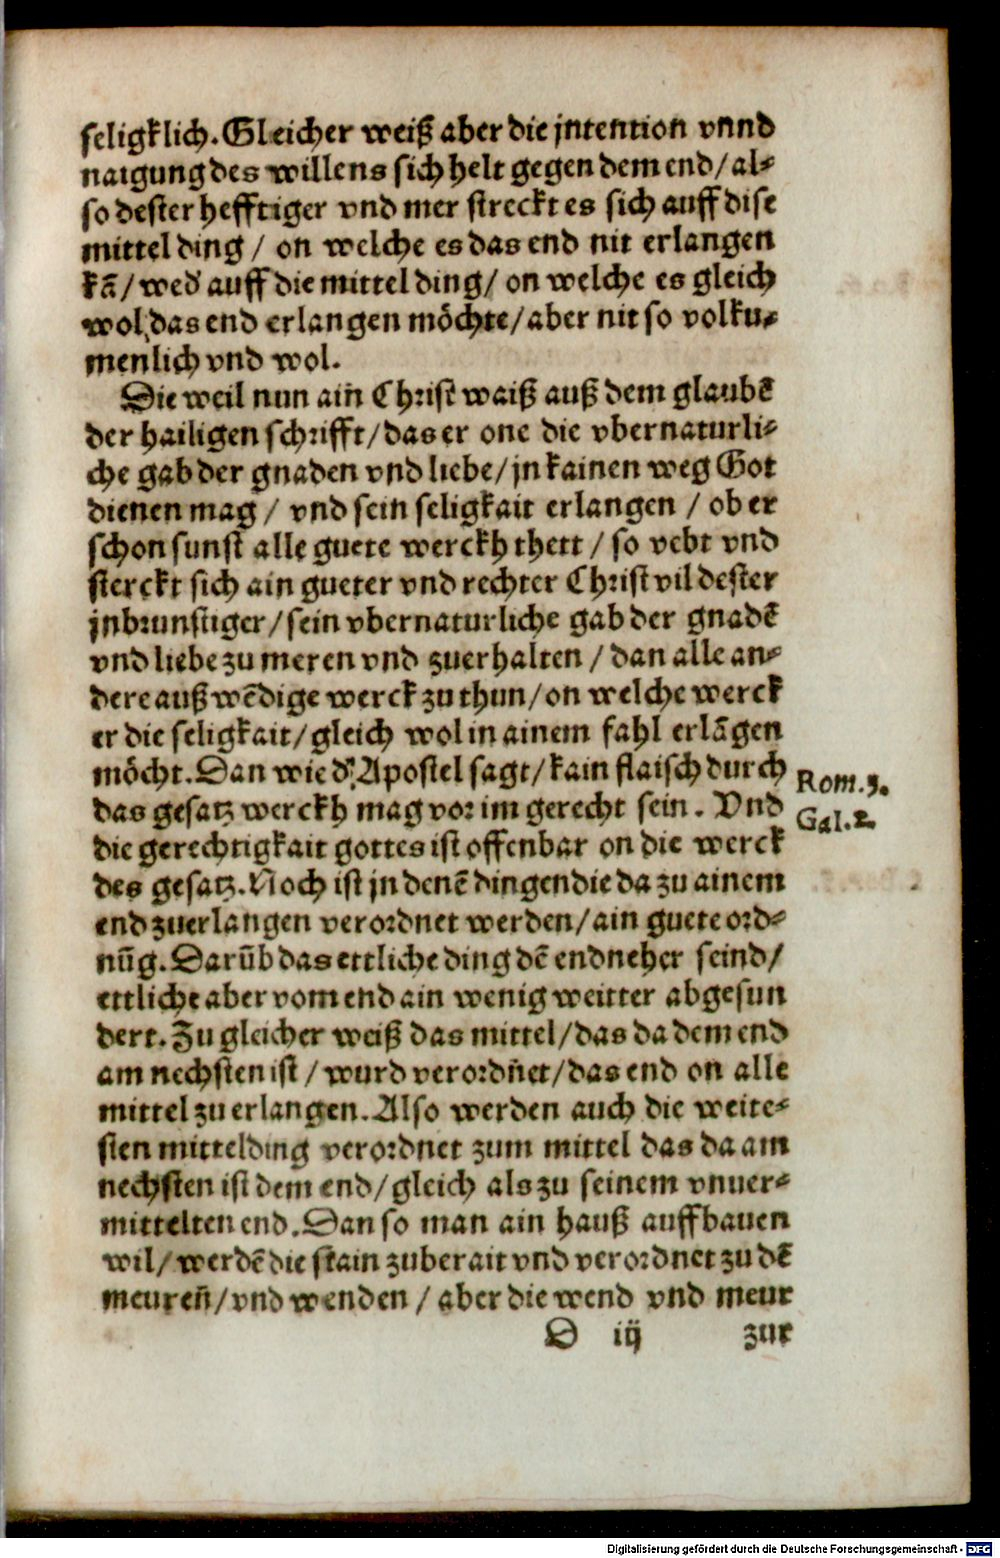 seligklich. Gleicher weiß aber die jntention vnnd
naigung des willens sich helt gegen dem end/ al-
so dester hefftiger vnd mer streckt es sich auff dise
mittel ding / on welche es das end nit erlangen
kā/ wed' auff die mittel ding/ on welche es gleich
wol das end erlangen möchte/ aber nit so volku-
menlich vnd wol.
Die weil nun ain̄ Christ waiß auß dem glaubē
der hailigen schrifft/ das er one die vbernaturli-
che gab der gnaden vnd liebe/ jn kainen weg Got
dienen mag / vnd sein seligkait erlangen / ob er
schon sunst alle guete werckh thett / so vebt vnd
sterckt sich ain gueter vnd rechter Christ vil dester
jnbrunstiger/ sein vbernaturliche gab der gnadē
vnd liebe zu meren vnd zuerhalten / dan alle an-
dere auß wēdige werck zu thun/ on welche werck
er die seligkait/ gleich wol in ainem fahl erlāgen
möcht. Dan wie d' Apostel sagt/ kain flaisch durch
das gesatz werckh mag vor im gerecht sein. Vnd
die gerechtigkait gottes ist offenbar on die werck
des gesatz. Noch ist jn denē dingen die da zu ainem
end zuerlangen verordnet werden/ ain guete ord-
nūg. Darūb das ettliche ding dē end neher seind/
ettliche aber vom end ain wenig weitter abgesun
dert. Zu gleicher weiß das mittel/ das da dem end
am nechsten ist / wurd verordn̄et/ das end on alle
mittel zu erlangen. Also werden auch die weite-
sten mittelding verordnet zum mittel das da am
nechsten ist dem end/ gleich als zu seinem vnuer-
mittelten end. Dan so man ain hauß auffbauen
wil/ werdē die stain zuberait vnd verordnet zu dē
meuren̄/ vnd wenden / aber die wend vnd meur
D iij zur
Rom. 3.
Gal. 2.
Digitalisierung gefördert durch die Deutsche Forschungsgemeinschaft - DFG